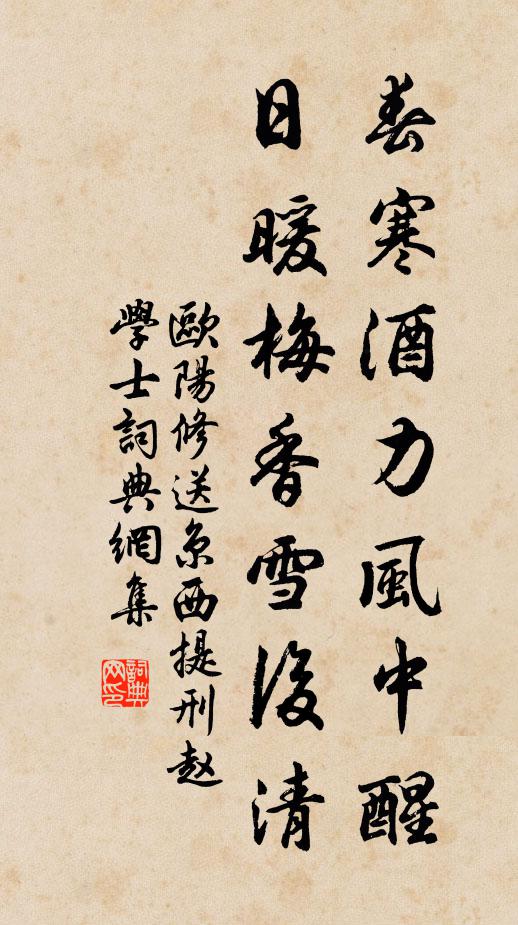 春寒酒力風中醒
日暖梅香雪後清
歐陽修送京西提刑赵
學士詞典網集
詞典網印